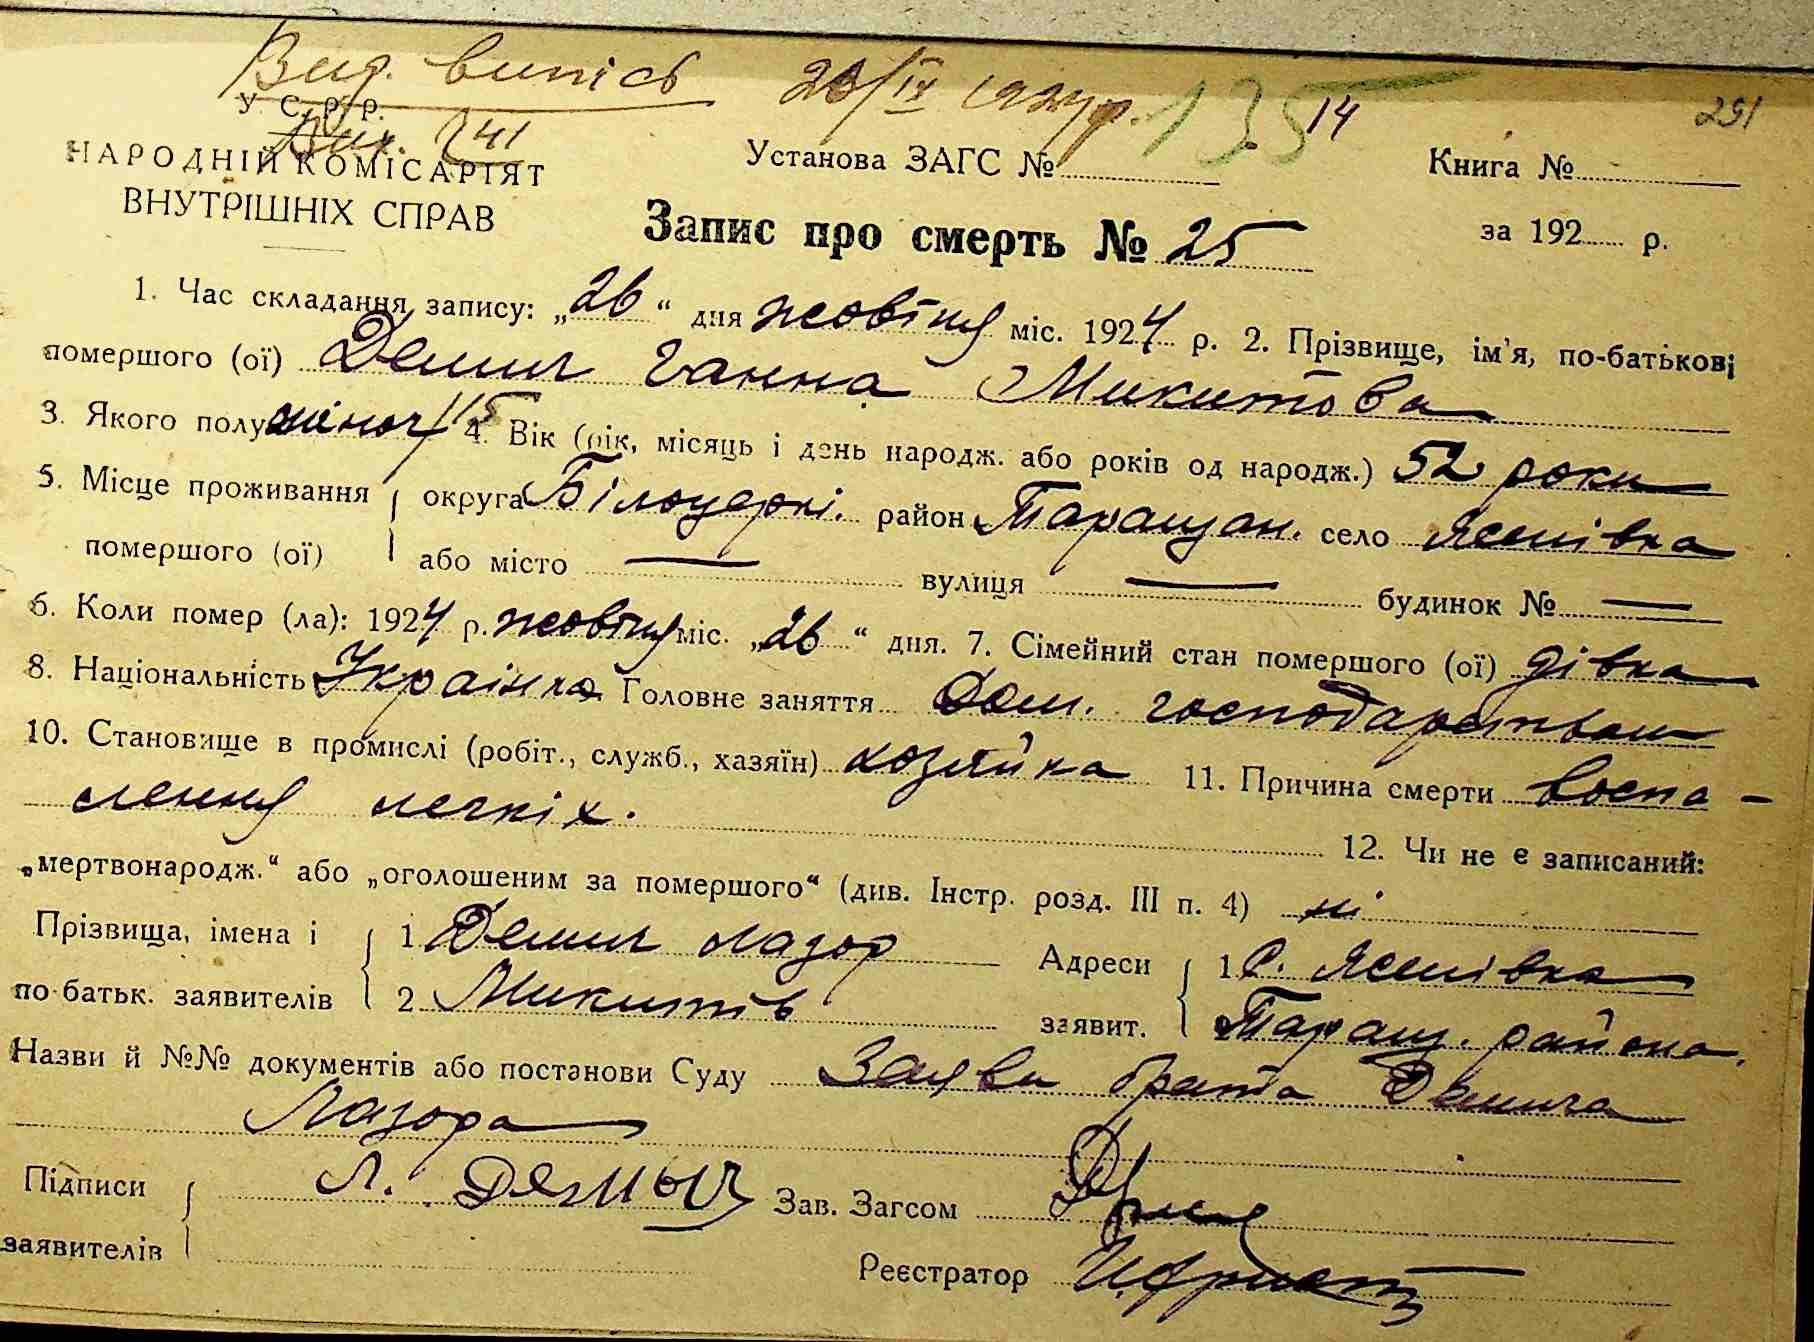 Вид. випісь 26/IX 1924 р. 135 14 291
У. С. Р. Р.
Вих. 741
НАРОДНІЙ КОМІСАРІЯТ Установа ЗАГС № Книга №
ВНУТРІШНІХ СПРАВ Запис про смерть № 25 за 192 р.
1. Час складання запису: „26“ дня жовтня міс. 1924 р. 2. Прізвище, ім'я, по-батькові
помершого (ої) Демич Ганна Микитова
3. Якого полу жіноч 4. Вік (рік, місяць і день народж. або років од народж.) 52 роки
5. Місце проживання округа Білоцеркі. район Таращан. село Ясенівка
помершого (ої) або місто — вулиця — будинок № —
6. Коли помер (ла): 1924 р. жовтня міс. „26“ дня. 7. Сімейний стан помершого (ої) дівка
8. Національність Українка Головне заняття Дом. господарством
10. Становище в промислі (робіт., служб., хазяїн) хозяйка 11. Причина смерти воспа-
лення легкіх.
12. Чи не є записаний:
„мертвонародж.“ або „оголошеним за помершого“ (див. Інстр. розд. III п. 4) ні
Прізвища, імена і 1. Демич Лазор Адреси 1. С. Ясенівка
по-батьк. заявителів 2. Микитів заявит. Таращ. района.
Назви й №№ документів або постанови Суду Заява брата Демича
Лазора
Підписи Л. Дямыч Зав. Загсом
заявителів
Реєстратор